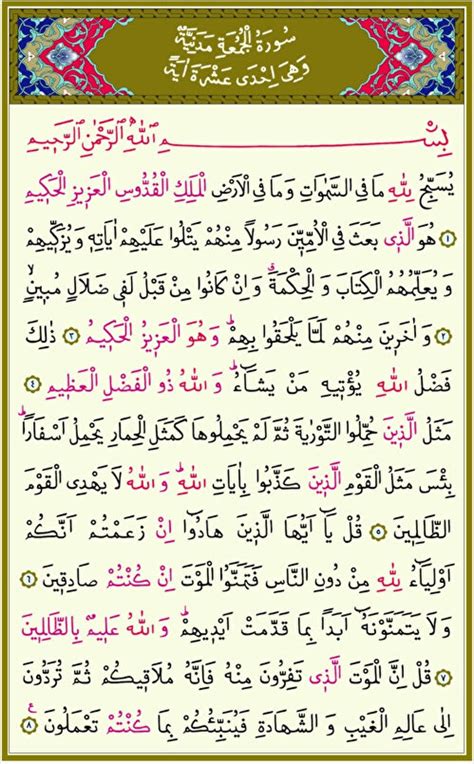 سُورَةُ الْجُمُعَةِ مَدَنِيَّةٌ
وَهِىَ اِحْدٰى عَشْرَةَ اٰيَةً
بِسْمِ اللّٰهِ الرَّحْمٰنِ الرَّحٖيمِ
يُسَبِّحُ لِلّٰهِ مَا فِى السَّمٰوَاتِ وَمَا فِى الْاَرْضِ الْمَلِكِ الْقُدُّوسِ الْعَزٖيزِ الْحَكٖيمِ
﴿١﴾ هُوَ الَّذٖى بَعَثَ فِى الْاُمِّيّٖنَ رَسُولاً مِنْهُمْ يَتْلُوا عَلَيْهِمْ اٰيَاتِهٖ وَيُزَكّٖيهِمْ
وَيُعَلِّمُهُمُ الْكِتَابَ وَالْحِكْمَةَۗ وَاِنْ كَانُوا مِنْ قَبْلُ لَفٖى ضَلَالٍ مُبٖينٍۙ
﴿٢﴾ وَاٰخَرٖينَ مِنْهُمْ لَمَّا يَلْحَقُوا بِهِمْۜ وَهُوَ الْعَزٖيزُ الْحَكٖيمُ ﴿٣﴾ ذٰلِكَ
فَضْلُ اللّٰهِ يُؤْتٖيهِ مَنْ يَشَٓاءُۜ وَاللّٰهُ ذُو الْفَضْلِ الْعَظٖيمِ ﴿٤﴾
مَثَلُ الَّذٖينَ حُمِّلُوا التَّوْرٰيةَ ثُمَّ لَمْ يَحْمِلُوهَا كَمَثَلِ الْحِمَارِ يَحْمِلُ اَسْفَاراًۜ
بِئْسَ مَثَلُ الْقَوْمِ الَّذٖينَ كَذَّبُوا بِاٰيَاتِ اللّٰهِۜ وَاللّٰهُ لَا يَهْدِى الْقَوْمَ
الظَّالِمٖينَ ﴿٥﴾ قُلْ يَٓا اَيُّهَا الَّذٖينَ هَادُٓوا اِنْ زَعَمْتُمْ اَنَّكُمْ
اَوْلِيَٓاءُ لِلّٰهِ مِنْ دُونِ النَّاسِ فَتَمَنَّوُا الْمَوْتَ اِنْ كُنْتُمْ صَادِقٖينَ ﴿٦﴾
وَلَا يَتَمَنَّوْنَهُٓ اَبَداً بِمَا قَدَّمَتْ اَيْدٖيهِمْۜ وَاللّٰهُ عَلٖيمٌ بِالظَّالِمٖينَ
﴿٧﴾ قُلْ اِنَّ الْمَوْتَ الَّذٖى تَفِرُّونَ مِنْهُ فَاِنَّهُ مُلَاقٖيكُمْ ثُمَّ تُرَدُّونَ
اِلٰى عَالِمِ الْغَيْبِ وَالشَّهَادَةِ فَيُنَبِّئُكُمْ بِمَا كُنْتُمْ تَعْمَلُونَ ﴿٨﴾ ع